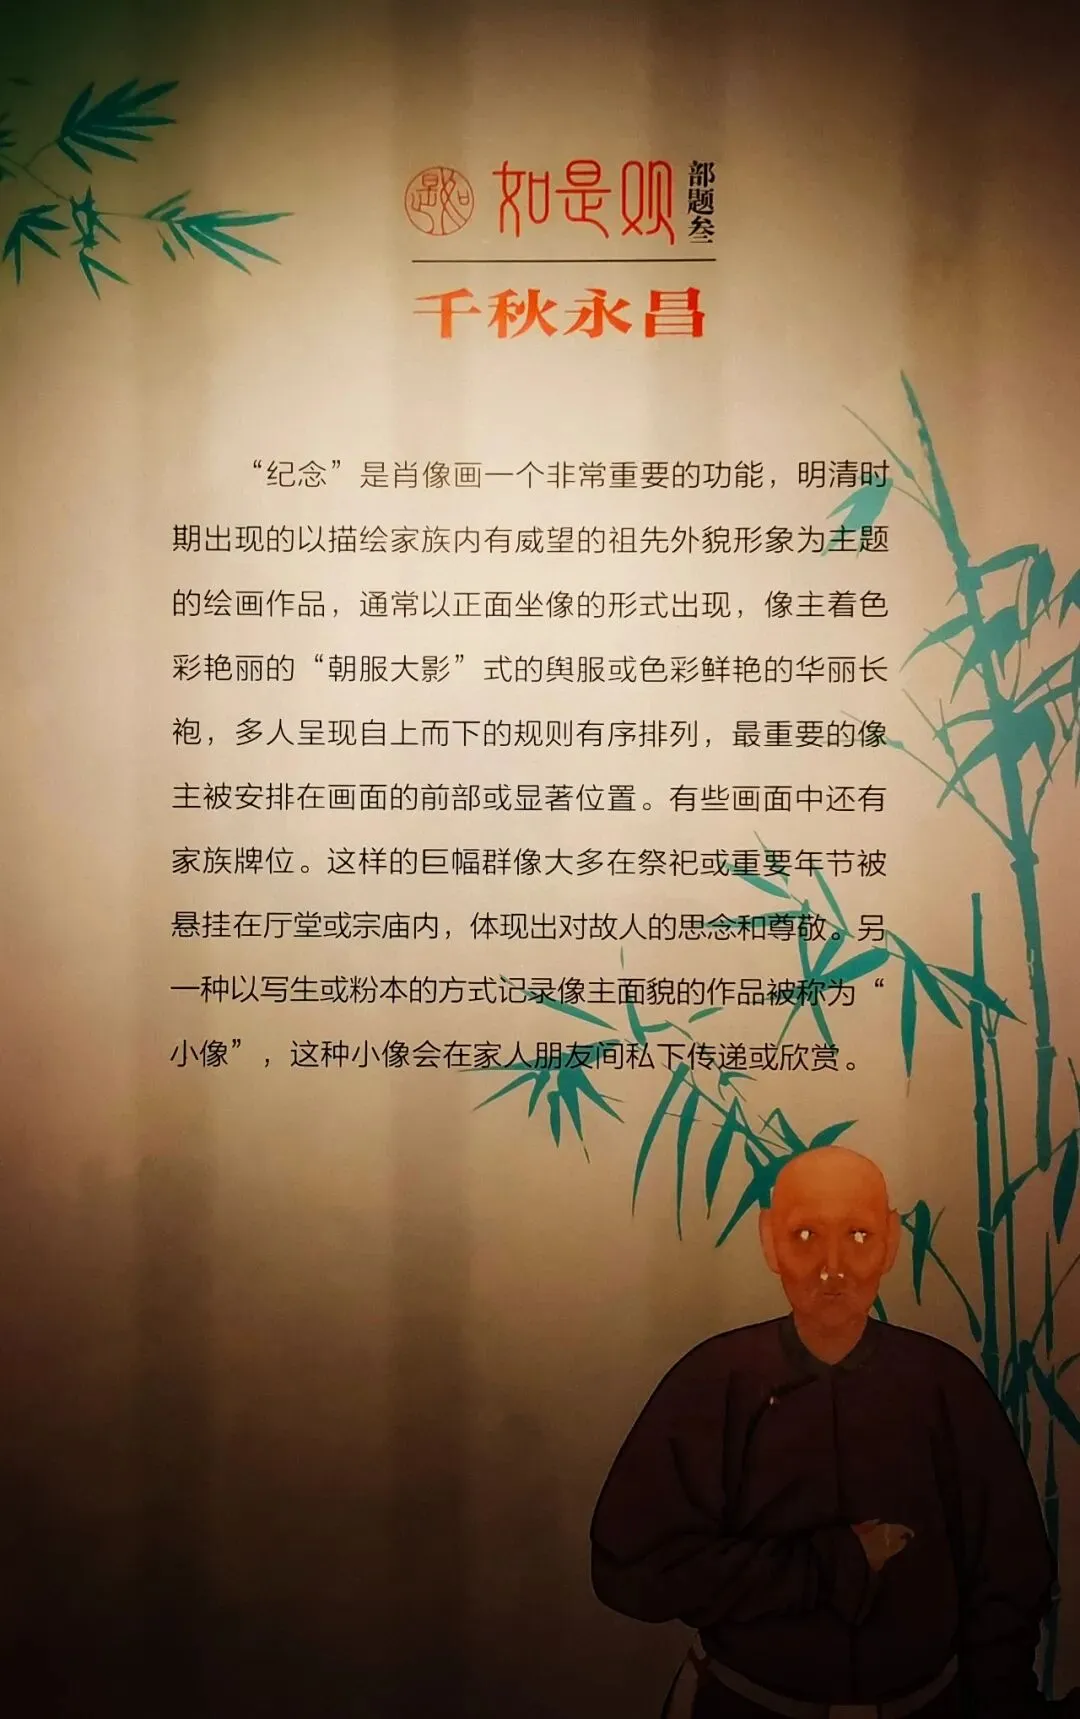 如是观
部题叁
千秋永昌
“纪念”是肖像画一个非常重要的功能，明清时
期出现的以描绘家族内有威望的祖先外貌形象为主题
的绘画作品，通常以正面坐像的形式出现，像主着色
彩艳丽的“朝服大影”式的舆服或色彩鲜艳的华丽长
袍，多人呈现自上而下的规则有序排列，最重要的像
主被安排在画面的前部或显著位置。有些画面中还有
家族牌位。这样的巨幅群像大多在祭祀或重要年节被
悬挂在厅堂或宗庙内，体现出对故人的思念和尊敬。另
一种以写生或粉本的方式记录像主面貌的作品被称为“
小像”，这种小像会在家人朋友间私下传递或欣赏。